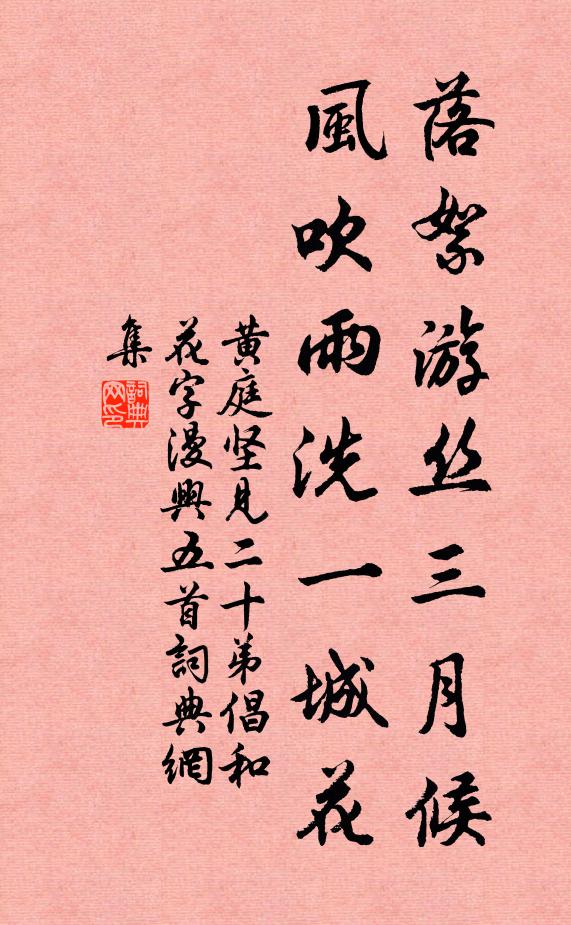 落絮游丝三月候
風吹雨洗一城花
黄庭坚見二十弟倡和
花字漫興五首詞典網
集
詞典网印